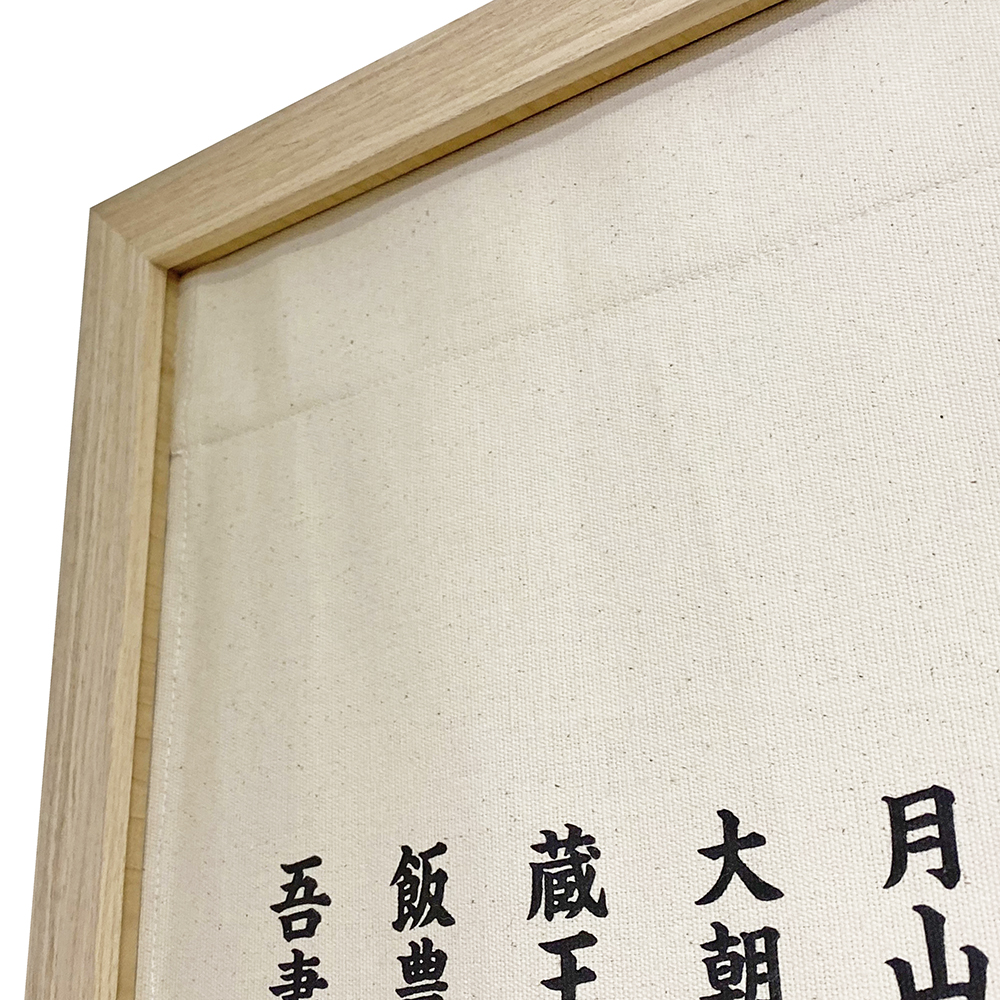 月山
大朝
蔵王
飯豊
吾妻